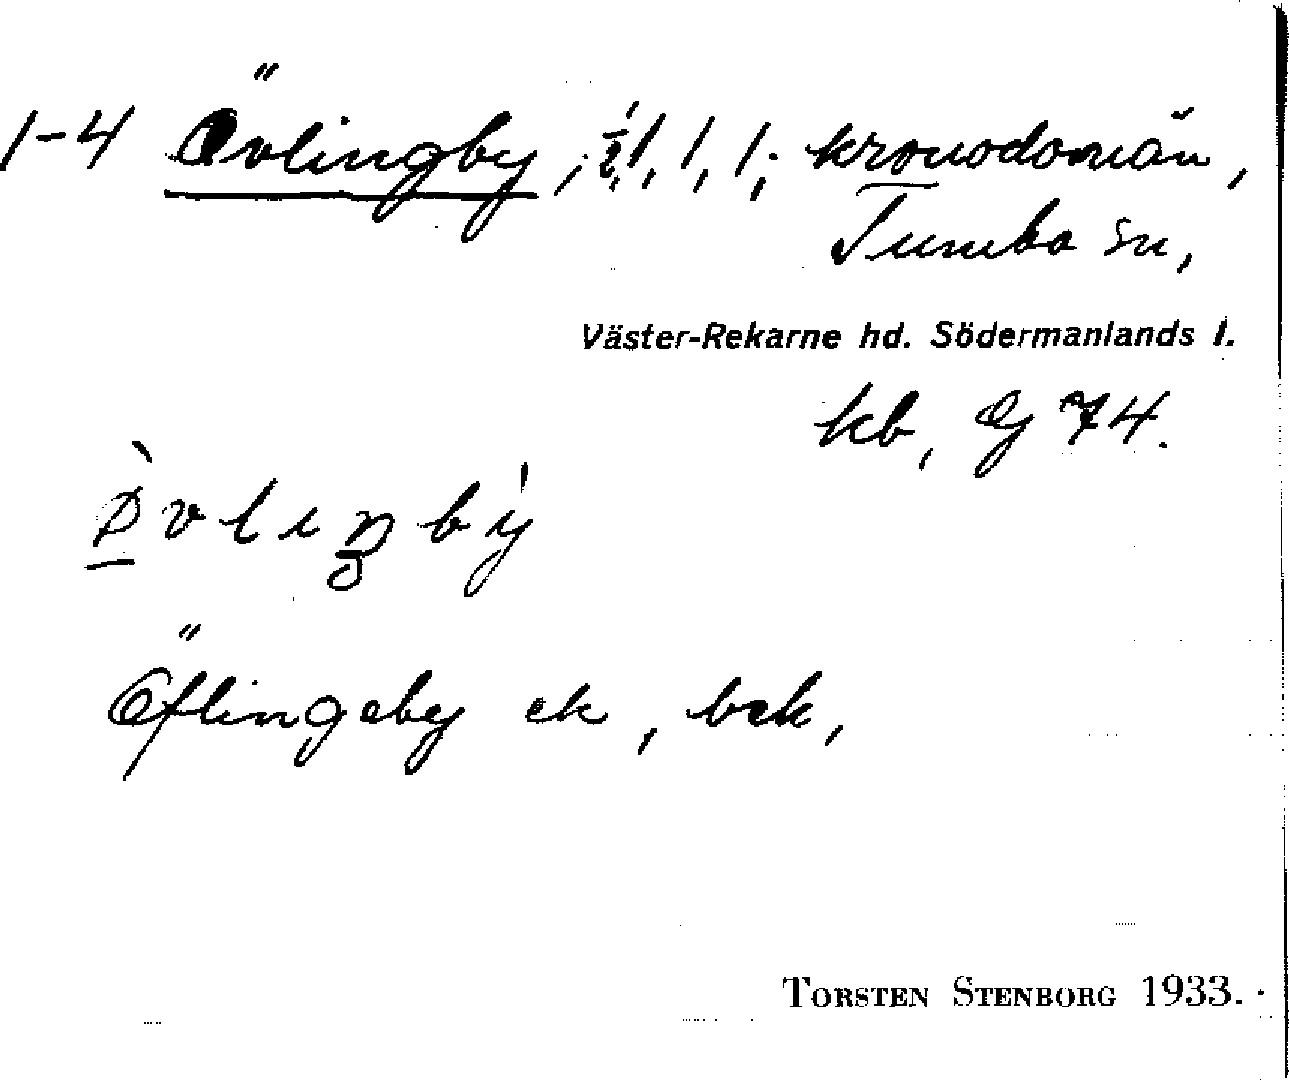 1-4 Övlingby, ½, 1, 1, 1; kronodomän,
Tumbo sn,
Väster-Rekarne hd. Södermanlands l.
kb, Gj 74.
Öflingeby ek, bek,
TORSTEN STENBORG 1933.